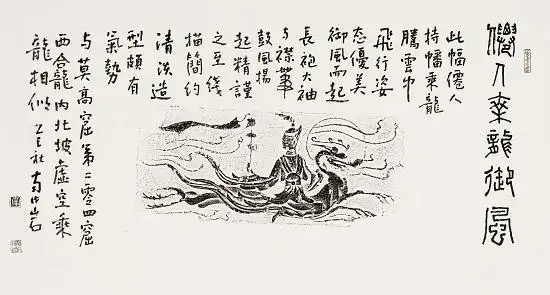 僊人乘龍御風
此幅僊人
持幡乘龍
騰雲中
飛行姿
態優美
御風而起
長袍大袖
与襟帶
鼓風揚
起精謹
之至线
描簡約
清淡造
型頗有
氣勢
与莫高窟第二零四窟
西合龕内北坡虛空乘
龍相似 乙巳秋